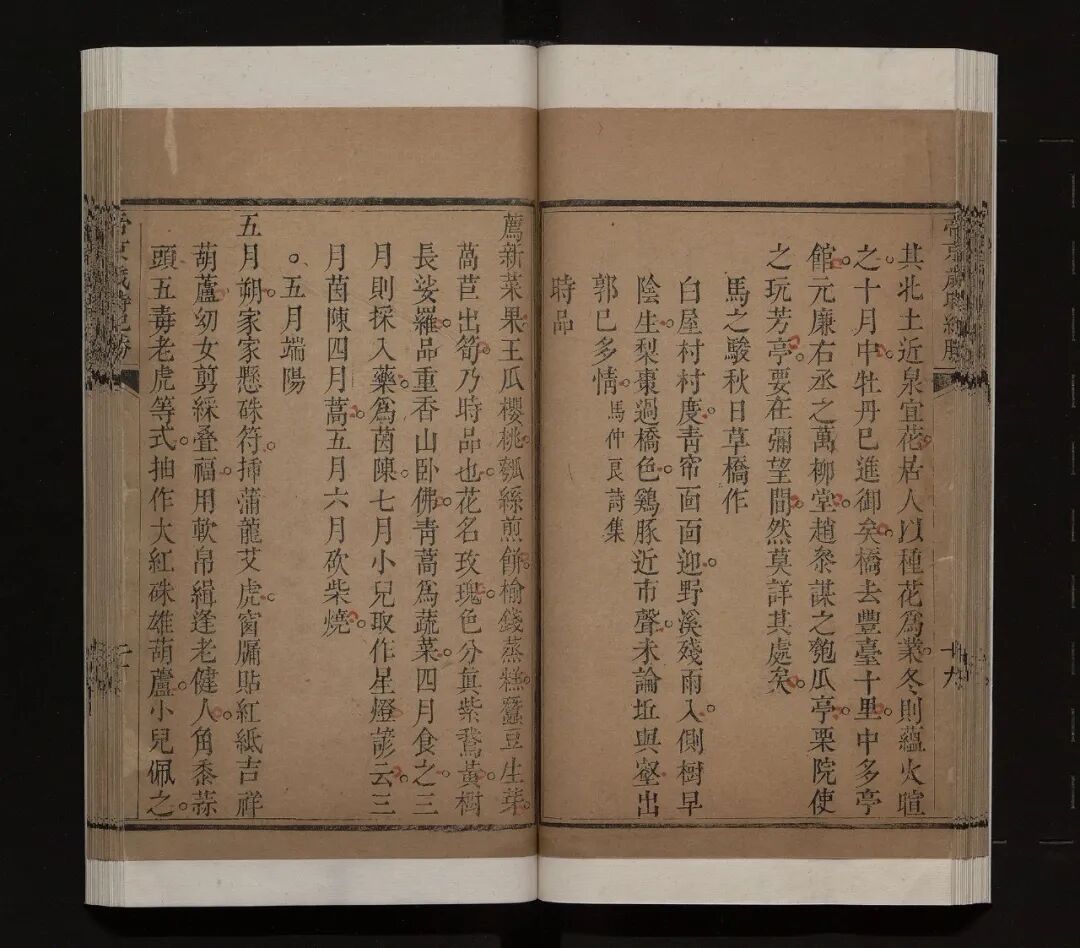 帝京歲時紀勝
其北土近泉宜花居人以種花爲業冬則蘊火暄
之十月中牡丹已進御矣橋去豐臺十里中多亭
館元廉右丞之萬柳堂趙叅謀之匏瓜亭栗院使
之玩芳亭要在彌望間然莫詳其處矣
馬之駿秋日草橋作
白屋村村度靑帘面面迎野溪殘雨入側樹早
陰生梨棗過橋色鷄豚近市聲未論坵與壑出
郭已多情馬仲良詩集
時品
十九
薦新菜果王瓜櫻桃瓠絲煎餅榆錢蒸糕蠶豆生芽
萵苣出筍乃時品也花名玫瑰色分眞紫鵞黃樹
長娑羅品重香山臥佛靑蒿爲蔬菜四月食之三
月則採入藥爲茵蔯七月小兒取作星燈諺云三
月茵陳四月蒿五月六月砍柴燒
五月端陽
五月朔家家懸硃符揷蒲龍艾虎窗牖貼紅紙吉祥
葫蘆幼女剪綵疊福用軟帛緝逢老健人角黍蒜
頭五毒老虎等式抽作大紅硃雄葫蘆小兒佩之
帝京歲時紀勝